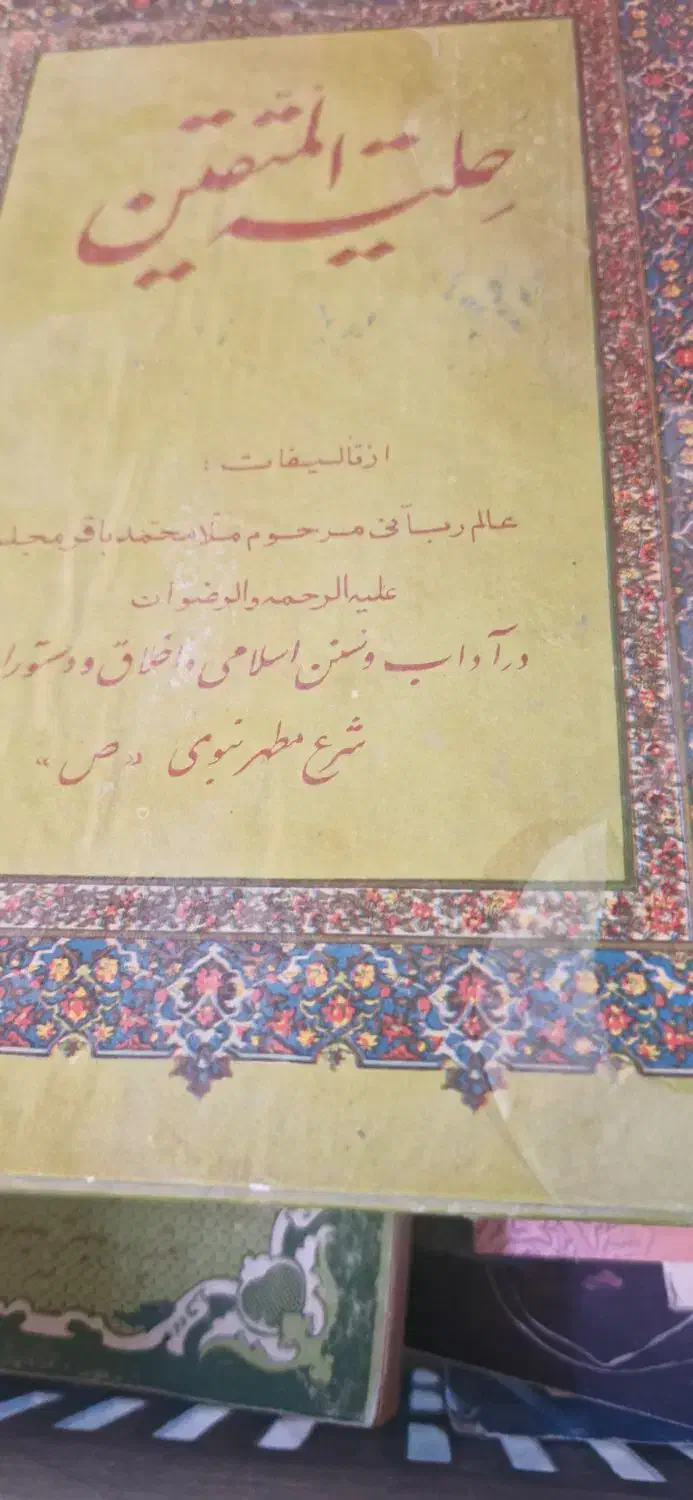 حلیة المتقین
از تألیفات :
عالم ربانی مرحوم ملامحمد باقر مجلس
علیه الرحمه والرضوان
در آداب و سنن اسلامی و اخلاق و دستورا
شرع مطهر نبوی «ص»